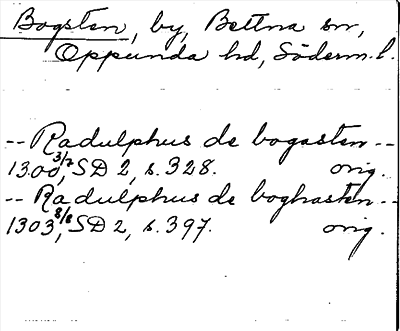 Bogsten, by, Bettna sn,
Oppunda hd, Söderm. l.
-- Radulphus de bogasten --
1300 3/7, SD 2, s. 328. orig.
-- Radulphus de boghasten --
1303 8/8, SD 2, s. 397. orig.